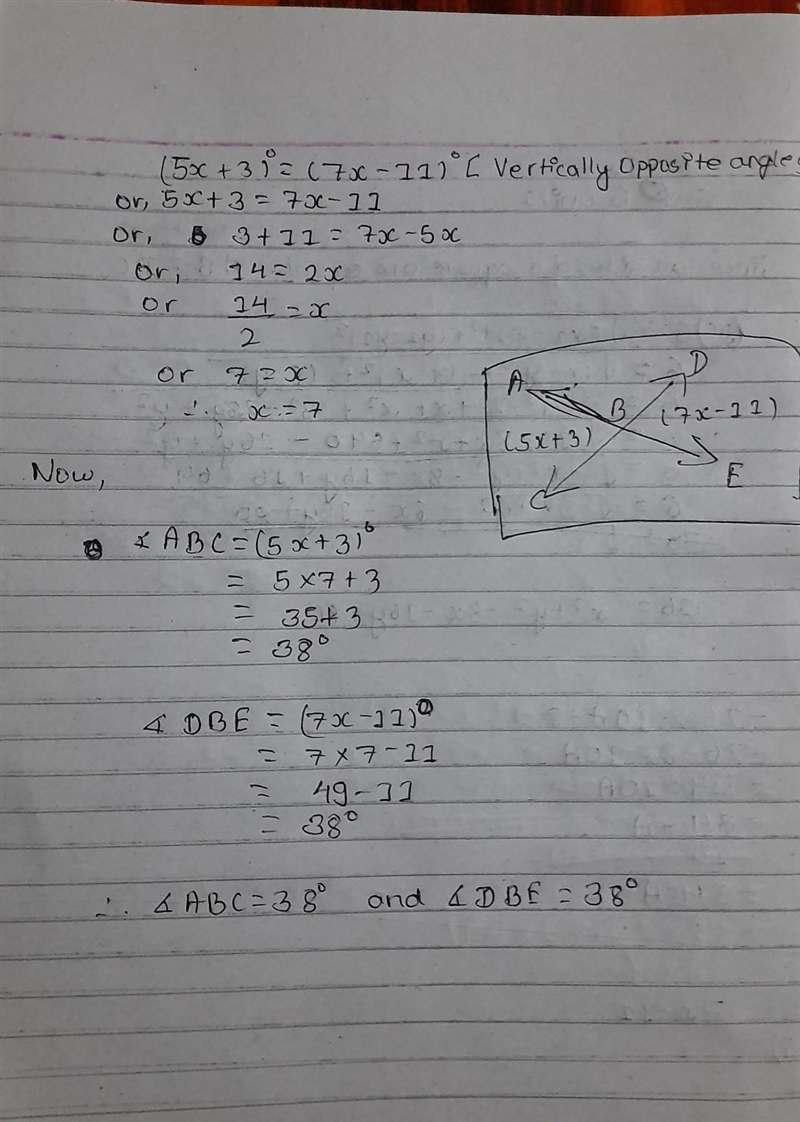 (5x+3)° = (7x-11)° [Vertically Opposite angles
or, 5x+3 = 7x-11
or, 3+11 = 7x-5x
or, 14 = 2x
or 14/2 = x
or 7 = x
∴ x = 7
A
D
B
(7x-11)
(5x+3)
E
C
Now,
∡ ABC = (5x+3)°
= 5×7+3
= 35+3
= 38°
∡ DBE = (7x-11)°
= 7×7-11
= 49-11
= 38°
∴ ∡ ABC = 38° and ∡ DBE = 38°